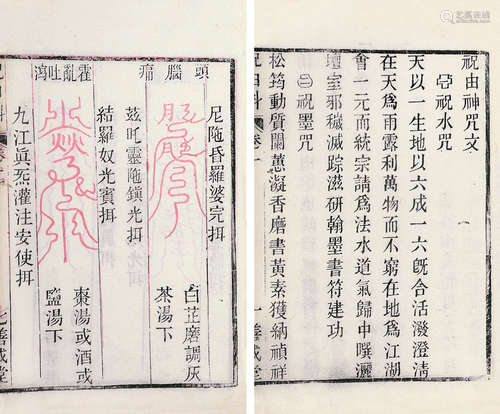 祝由神咒文
㊁祝水咒
天以一生地以六成一六既合活潑澄清
在天爲雨露利萬物而不窮在地爲江湖
會一元而統宗請爲法水道氣歸中噀灑
壇室邪穢滅踪滋研翰墨書符建功
㊁祝墨咒
松筠動質蘭蕙凝香磨書黃素獲納禎祥
卷一
一善成堂
頭腦痛
尼陁昏羅婆完抇
白芷磨調灰
茶湯下
茲吒靈陁鎮光抇
霍亂吐瀉
結羅奴光賓抇
棗湯或酒或
鹽湯下
九江眞炁灌注安使抇
祝由科
善成堂